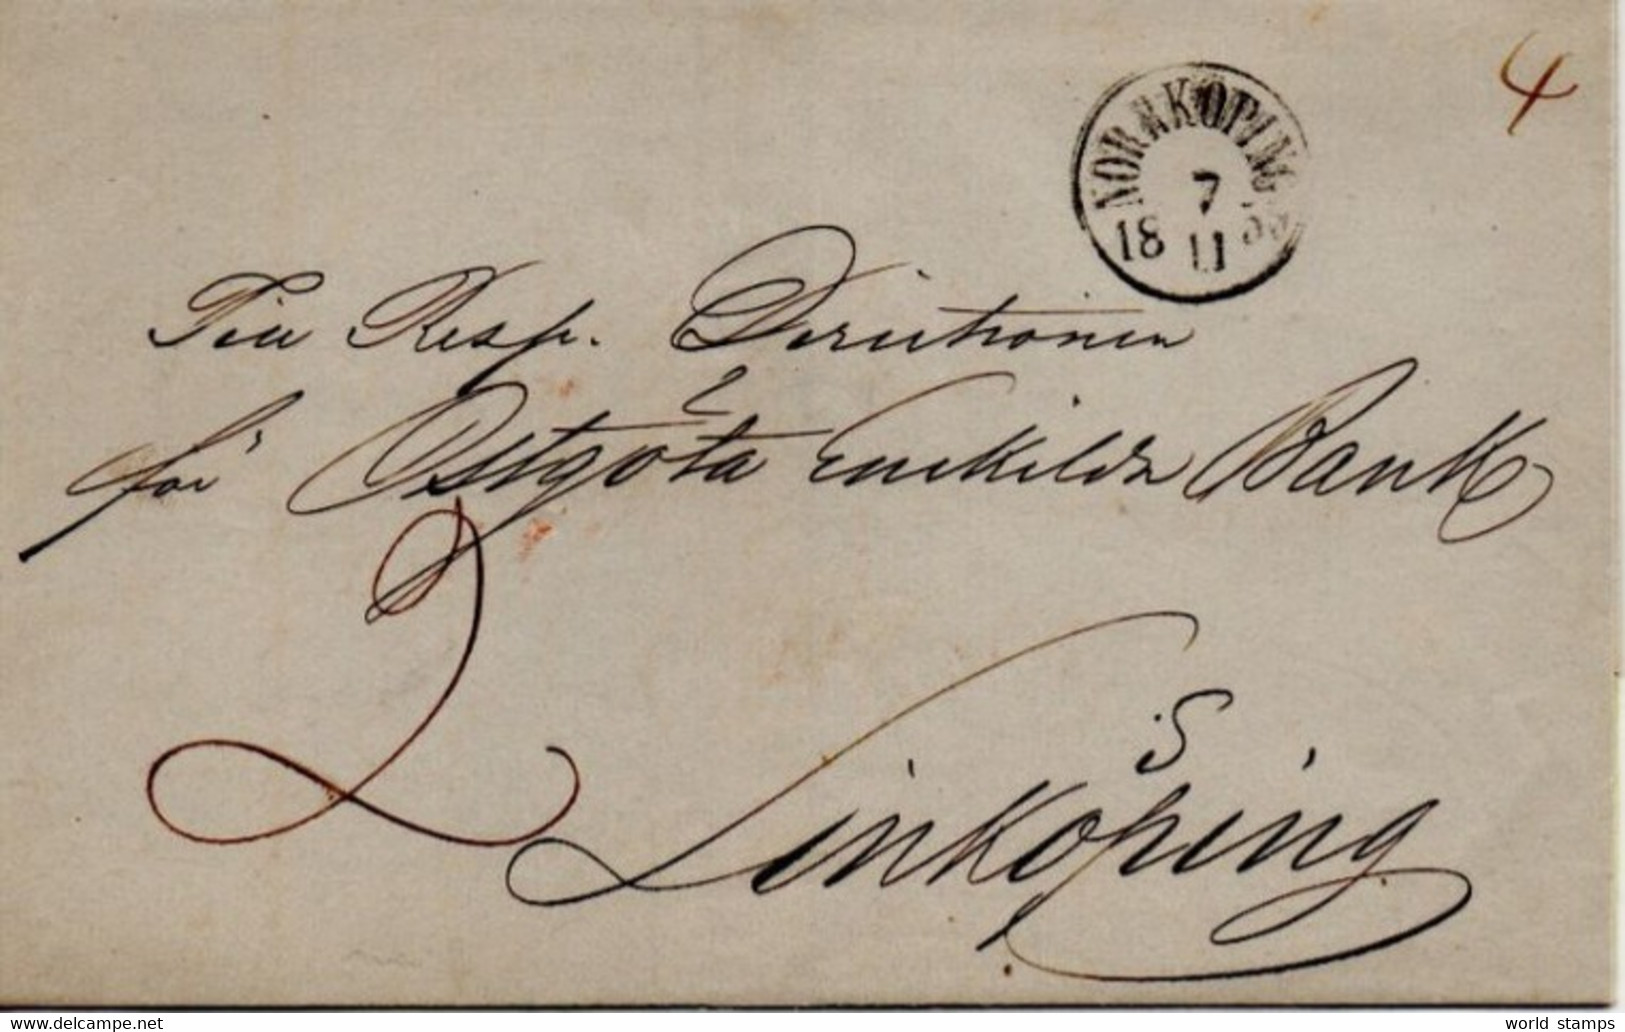 4
NORRKÖPING
7
18 11 55
Till Resp. Direktionen
för Östgöta Enskilda Bank
2
Linköping
world stamps